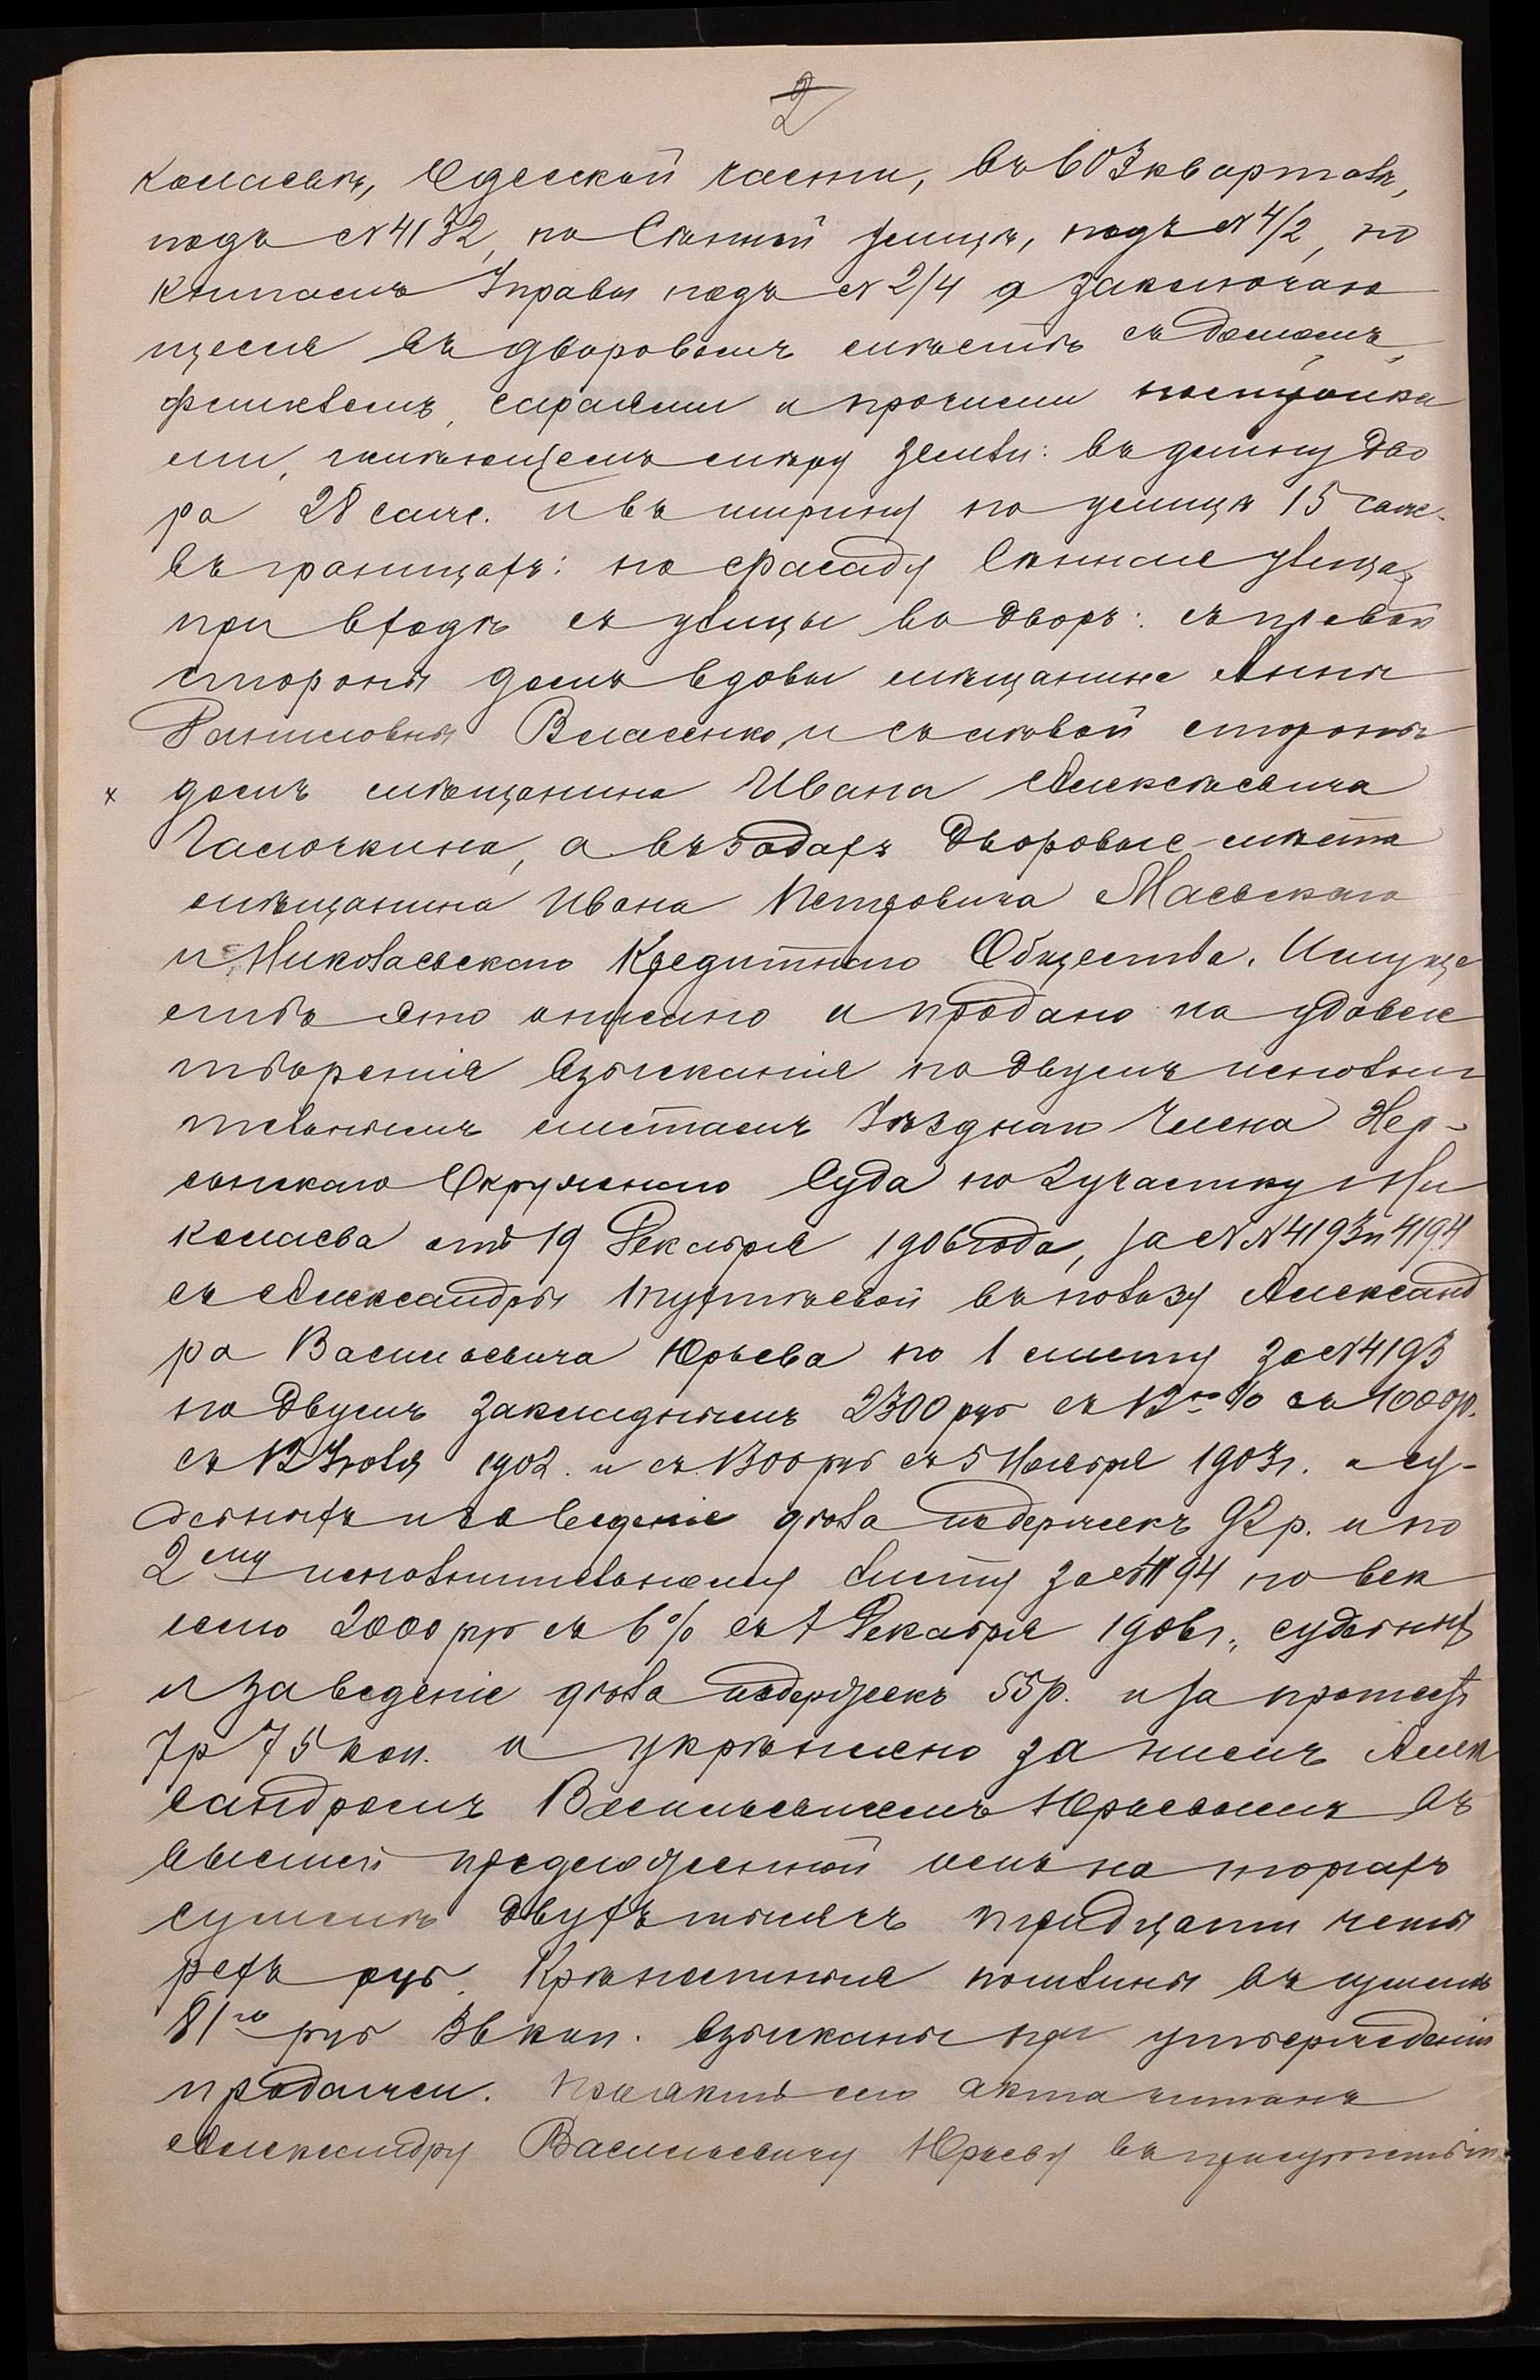 2
колаевѣ, Одесской части, въ 603 кварталѣ,
подъ №4132, по Сѣнной улицѣ, подъ №4/2, по
книгамъ Управы подъ №2/4 и заключаю
щееся въ дворовомъ мѣстѣ съ домомъ,
флигелемъ, сараями и прочими постройка
ми, имѣющемъ мѣру земли: въ длину дво
ра 28 саж. и въ ширину по улицѣ 15 саж.
въ границахъ: по фасаду Сѣнная улица,
при входѣ съ улицы во дворъ: съ правой
стороны домъ вдовы мѣщанина Анны
Даниловны Власенко, и съ лѣвой стороны
x домъ мѣщанина Ивана Алексѣевича
Галочкина, а въ задахъ дворовыя мѣста
мѣщанина Ивана Петровича Маевскаго
и Николаевскаго Кредитнаго Общества. Имуще
ство это описано и продано на удовле
творенія взысканія по двумъ исполни
тельнымъ листамъ Уѣзднаго Члена Хер-
сонскаго Окружнаго Суда по 2 участку г. Ни
колаева отъ 19 Декабря 1906 года, за №№ 4193 и 4194
съ Александры въ пользу Александ
ра Васильевича Юрьева по 1 листу за №4193
по двумъ закладнымъ 2300 руб съ 12% съ 1000 р.
съ 12 Іюля 1902. и съ 1300 руб съ 5 Ноября 1903 г. и су-
дебныхъ и за веденіе дѣла издержекъ 92 р. и по
2му исполнительному листу за №4194 по век
селю 2000 руб съ 6% съ 1 Декабря 1906 г., судебныхъ
и за веденіе дѣла издержекъ 55 р. и за протестъ
7 р 75 коп. и укрѣплено за нимъ Алек
сандромъ Васильевичемъ Юрьевымъ въ
высшей предложенной имъ на торгахъ
суммѣ двухъ тысячъ тридцати четы
рехъ руб. Крѣпостныя пошлины въ суммѣ
81го руб 36 коп. взысканы при утвержденіи
продажи. Проектъ сего акта читанъ
Александру Васильевичу Юрьеву въ присутствіи